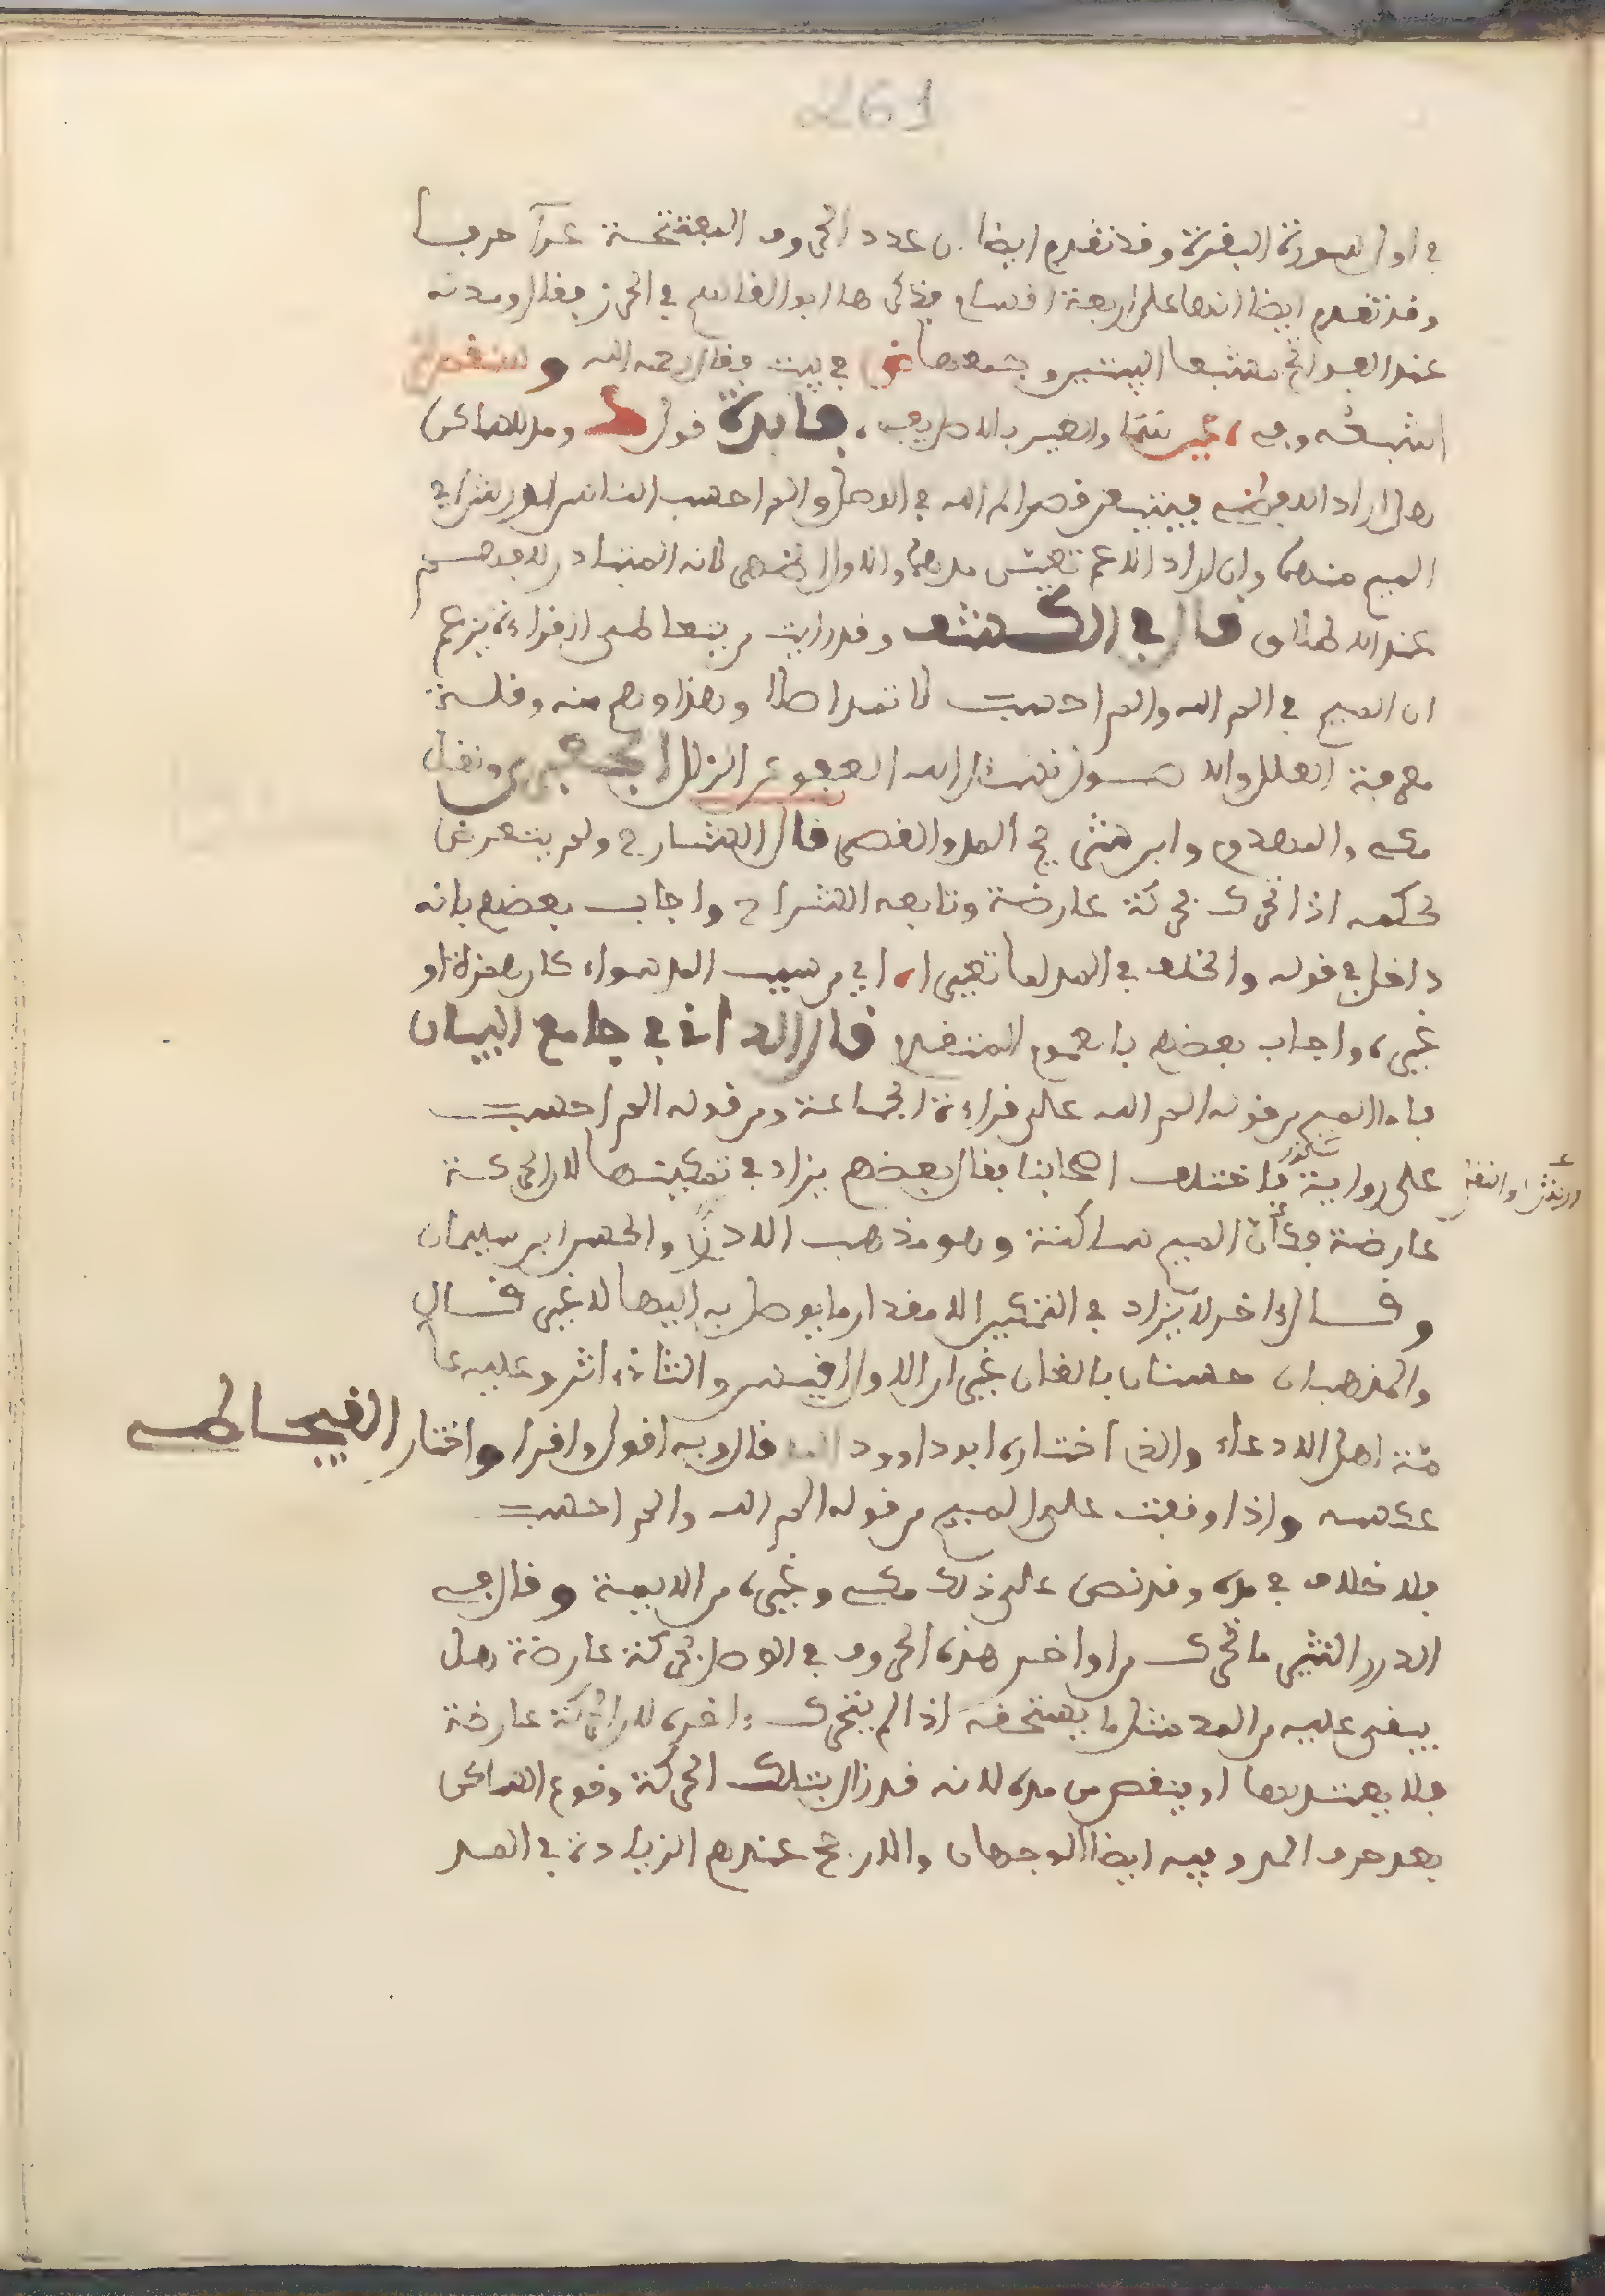 261
في اول سورة البقرة وقد تقدم ايضا ان عدد الحروف المفتتحة عـدا حرفا
وقد تقدم ايضا انها على اربعة اقسام فذكرها ابو القاسم في الحرز فقال ومد له
عند الفواتح مشبعا البيتين وجمعها في بيت فقال رحمه الله
اشبعه وفي عين بالاطريق، فايدة قول ومد للساكن
هل اراد الادغام فيبقى قصر الم الله في الوصل والم احسب الناس لورش في
الميم منهما وان اراد الاعم تعين مدهما والاول اظهر لانه المتبادر للفهم
عند الاطلاق قال في الكشف وقد رايت من يتعاطى القراءة يزعم
ان الميم في الم الله والم احسب لا تمد اصلا وهذا وهم منه وقلة
معرفة العلل والاصول نسال الله العفو عن الزلل الجعبري ونقل
مكي والمهدوي وابن شريح المد والقصر قال الشارح ولم يتعرض
لحكمه اذا تحرك بحركة عارضة وتابعه الشراح واجاب بعضهم بانه
داخل في قوله والخلف في المد لما تغيرا، اي من سبب المد سواء كان همزة او
غيره، واجاب بعضهم بالعموم المتقدم قال الداني في جامع البيان
فاما الميم من قوله الم الله على قراءة الجماعة ومن قوله الم احسب
على رواية ورش فاختلف اصحابنا فقال بعضهم يزاد في تمكينها لان الحركة
عارضة فكأن الميم ساكنة وهو مذهب الادفوي والحسن ابن سليمان
وقال ءاخر لا يزاد في التمكين الا مقدار ما يوصل به اليها لا غير قال
والمذهبان حسنان بالغان غير ان الاول اقيس والثاني ءاثر وعليه عا
مة اهل الاداء والذي اختاره ابو داوود قال وبه اقول واقرا واختار القيجاطي
عكسه واذا وقفت على الميم من قوله الم الله والم احسب
فلا خلاف في مده وقد نص على ذلك مكي وغيره من الايمة وقال في
الدرر النثير ما تحرك من اواخر هذه الحروف في الوصل بحركة عارضة هل
يبقى عليه من المد مثل ما يستحقه اذا لم يتحرك ءاخره لان الحركة عارضة
فلا يعتد بها او ينقص من مده لانه قد زال بتلك الحركة وقوع الساكن
بعد حرف المد وفيه ايضا الوجهان والارجح عندهم الزيادة في المد